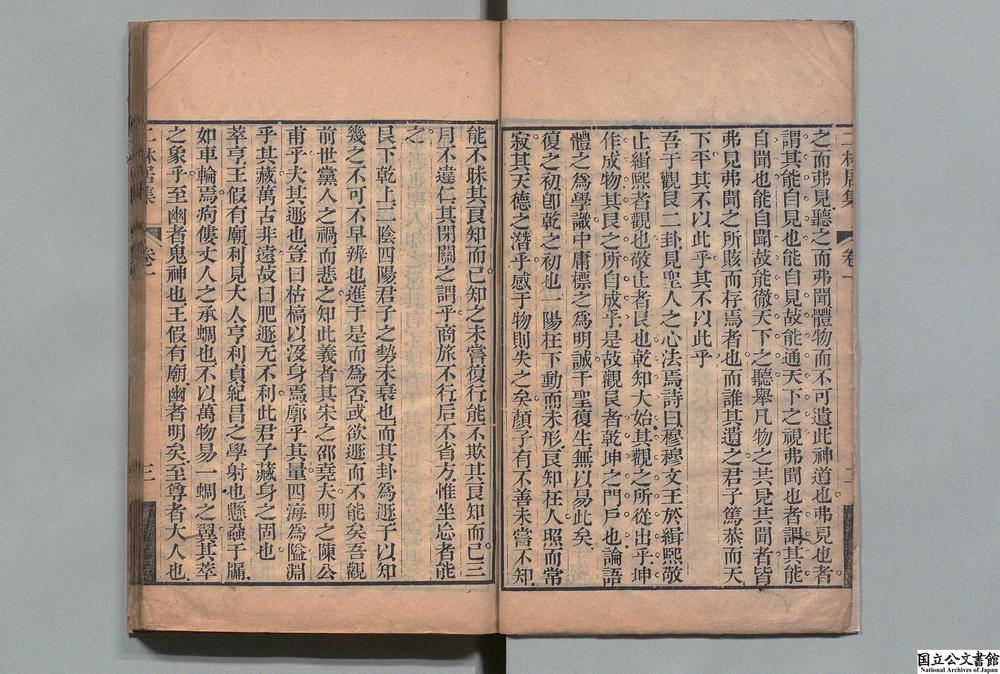 二林居集 卷一 二
之而弗見聽之而弗聞體物而不可遺此神道也弗見也者
謂其能自見也能自見故能通天下之視弗聞也者謂其能
自聞也能自聞故能徹天下之聽舉凡物之共見共聞者皆
弗見弗聞之所賅而存焉者也而誰其遺之君子篤恭而天
下平其不以此乎其不以此乎
吾于觀艮二卦見聖人之心法焉詩曰穆穆文王於緝熙敬
止緝熙者觀也敬止者艮也乾知大始其觀之所從出乎坤
作成物其艮之所自成乎是故觀艮者乾坤之門戶也論語
體之為學識中庸標之為明誠千聖復生無以易此矣
復之初卽乾之初也一陽在下動而未形良知在人照而常
寂其天德之潛乎感于物則失之矣顏子有不善未嘗不知
能不昧其良知而已知之未嘗復行能不欺其良知而已三
月不違仁其閉關之謂乎商旅不行后不省方惟坐忘者能
之
艮下乾上二陰四陽君子之勢未衰也而其卦為遯于以知
幾之不可不早辨也進于是而為否或欲遯而不能矣吾觀
前世黨人之禍而悲之知此義者其宋之邵堯夫明之陳公
甫乎夫其遯也豈曰枯槁以沒身焉廓乎其量四海為隘淵
乎其藏萬古非遠故曰肥遯无不利此君子藏身之固也
萃亨王假有廟利見大人亨利貞紀昌之學射也懸蝨于牖
如車輪焉痀僂丈人之承蜩也不以萬物易一蜩之翼其萃
之象乎至幽者鬼神也王假有廟幽者明矣至尊者大人也
二林居集 卷一 三
国立公文書館
National Archives of Japan